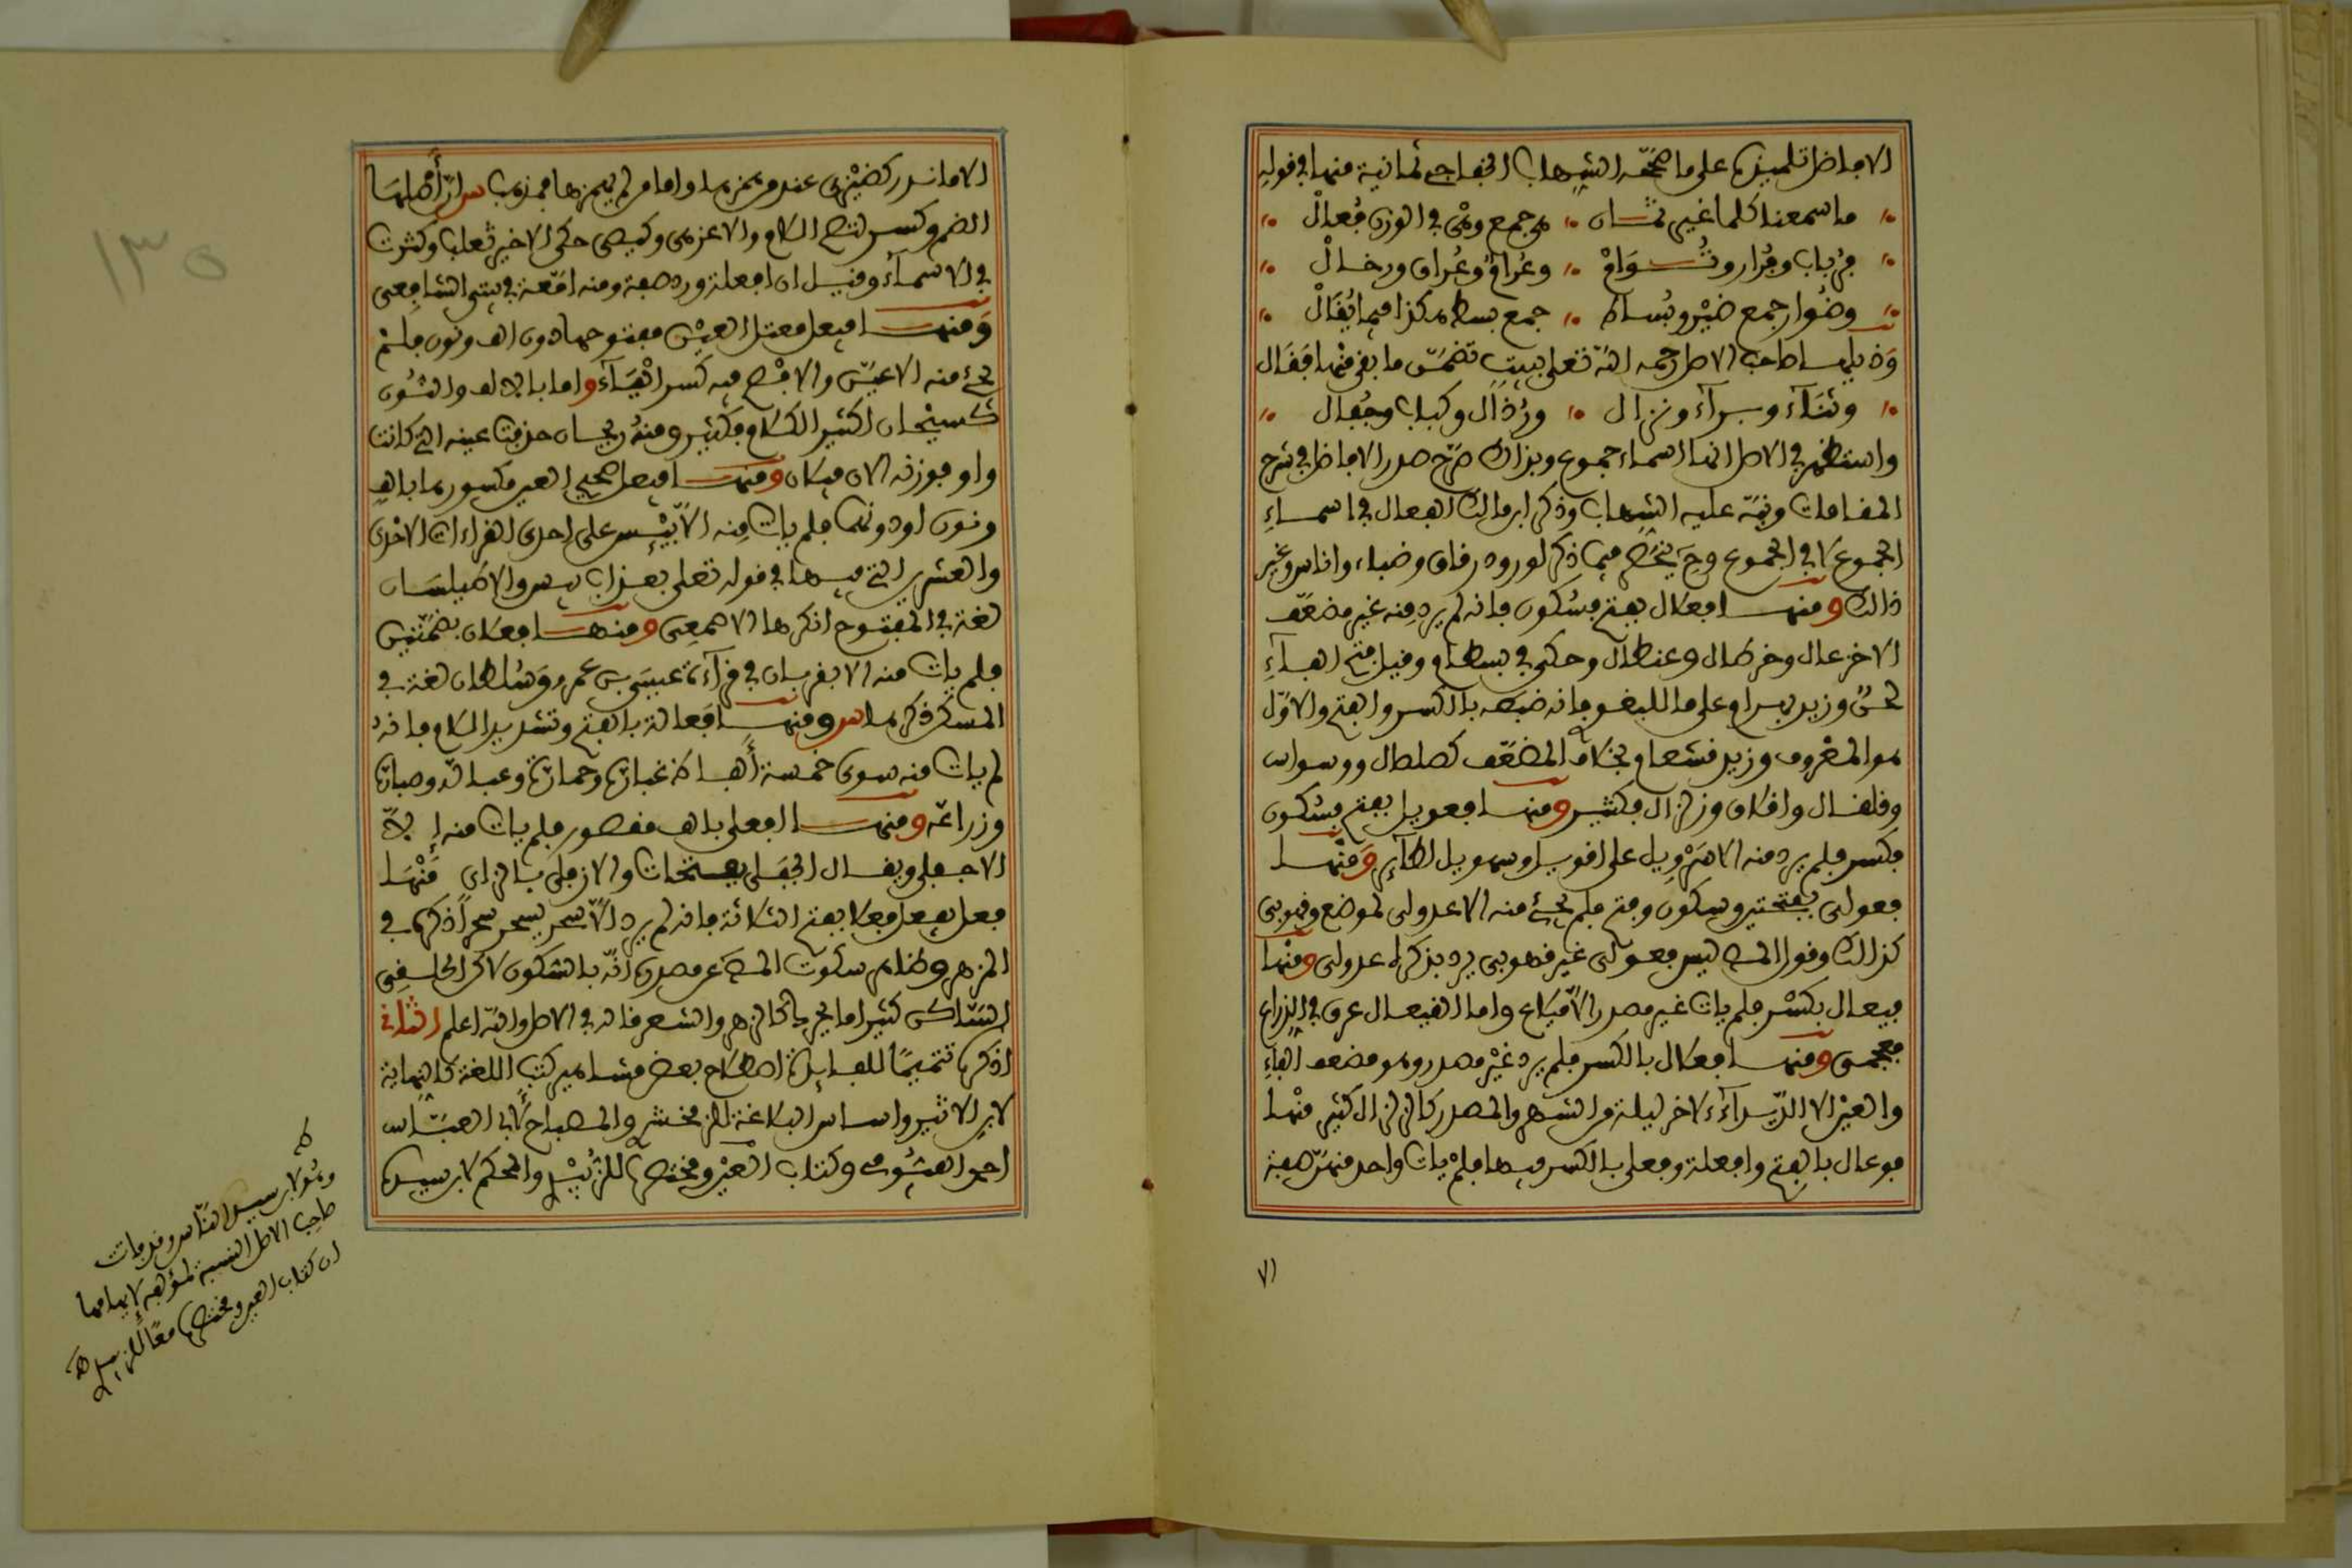 الافاضل تلميذه على ما صححه الشهاب الخفاجي ثمانية منها في قوله
ما سمعنا كلما غير ثمان هي جمع وهي في الوزن فعال
فرباب وفرار وتؤام وعرام وعراق ورخال
وظؤار جمع ظئر وبساط جمع بسط هكذا فيما يقال
وذيلها صاحب الاصل رحمه الله تعلى ببيت تضمن ما بقي منها فقال
وثناء وبراء ونزال ورذال وكباب وجفال
واستظهر في الاصل انها اسماء جموع وبذالك صرح صدر الافاضل في شرح
المقامات ونبه عليه الشهاب وذكر ابن مالك الفعال في اسماء
الجموع لا في الجموع
ذالك ومنها فعلال بفتح فسكون فانه لم يرد منه غير مضعف
الا خزعال وخرطال وقيل بفتح الفاء
بالكسر والفتح والاول
هو المعروف وزيد قشعام بخلاف المضعف كصلصال ووسواس
وقلقال وزلزال فكثير ومنها فعويل بفتح فسكون
فكسر فلم يرد منه الا سرويل على اقويل وسمويل لطائر ومنها
فعولى بفتحتين وسكون وفتح فلم يجئ منه الا عدولى لموضع وقهوبى
كذالك وقول المص ليس فعولى غير قهوبى يرد بذكره عدولى ومنها
فيعال بكسر فلم يات غير مصدر الا
ومنها فعلال بالكسر فلم يرد غير مصدر وهو مضعف الفاء
والعين الا الديداء لاخر ليلة من الشهر والمصدر كالزلزال كثير منها
فوعال بالفتح وافعلة وفعلى بالكسر فيهما فلم يات واحد منهن صفة
الا ما ندر كضيزى عند من همزها واما من لم يهمزها فمذهب س ان اصلها
الضم وكسر لتصح والا عزهى وكيصى حكى الاخير ثعلب وكثرت
في الاسماء وقيل ان افعلة ورد صفة ومنه امعة في بيتي الشافعي
ومنها فيعل معتل العين مفتوحها دون الف ونون فلم
يجئ منه الا عين والافصح فيه كسر الياء واما بالالف والنون
كسيحان لكثير الكلام فكثير ومنه ريحان حذفت عينه التي كانت
واو فوزنه الان فيلان ومنها فيعل صحيح العين مكسورها بالف
ونون او دونها فلم يات منه الا بيئس على احدى القراءات الاحدى
والعشر التي فيها في قوله تعلى بعذاب بيس والا طيلسان
لغة في المفتوح انكرها الاصمعي ومنها فعلان بضمتين
فلم يات منه الا بقربان في قراءة عيسى بن عمر وسلطان لغة في
المسكن ذكرها س ومنها فعالة بالفتح وتشديد اللام فانه
لم يات منه سوى خمسة الفاظ
وزرافة ومنها الفعلى بالف مقصور فلم يات منه إلا
الاجفلى ويقال الجفلى بفتحات والازفلى بالزاي منها
فعل يفعل فعلا بفتح الثلاثة فانه لم يرد الا سحر يسحر سحرا ذكره في
المزهر وظاهر سكوت المص عن مصدره انه بالسكون لاكن الحلفي
الساكن كثيرا ما يحرك كالزهر والشعر قاله في الاصل والله اعلم الثاني
اذكر تتميما للفايدة اصطلاح بعض مشاهير كتب اللغة كالنهاية
لابن الاثير واساس البلاغة للزمخشري والمصباح لابي العباس
احمد الفيومي وكتاب العين ومختصره للزبيدي والمحكم لابن سيده
ط
وهو لابن سيد الناس وقد فات
صاحب الاصل النسبة لمؤلفه لايهامها
ان كتاب العين ومختصره معا للزبيدي اه
٧١
١٣٥